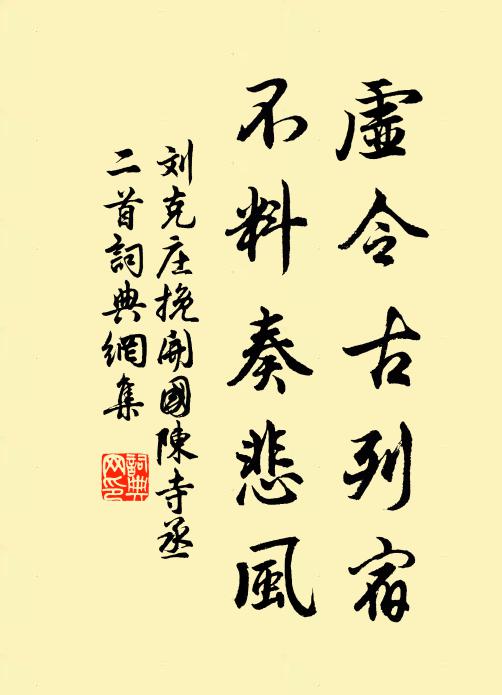 虛令古列宿
不料奏悲風
刘克庄挽開國陳寺丞
二首詞典網集
詞典
网印